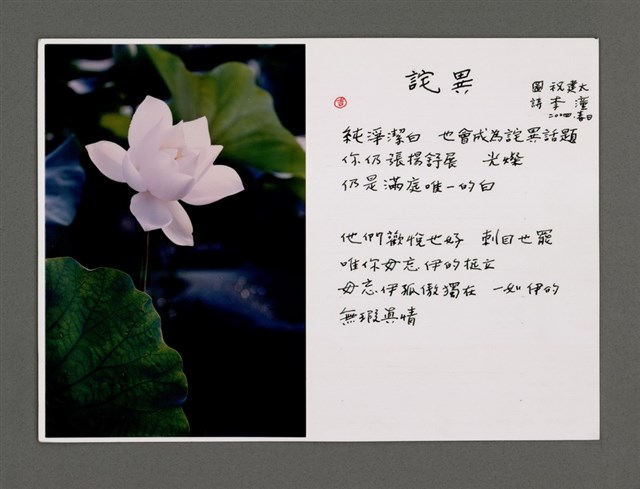 詫異
圖 祝建太
詩 李潼
二〇〇四.春日
純淨潔白 也會成為詫異話題
你仍張揚舒展 光燦
仍是滿庭唯一的白
他們歡悅也好 刺目也罷
唯你毋忘伊的挺立
毋忘伊孤傲獨在 一如伊的
無瑕真情